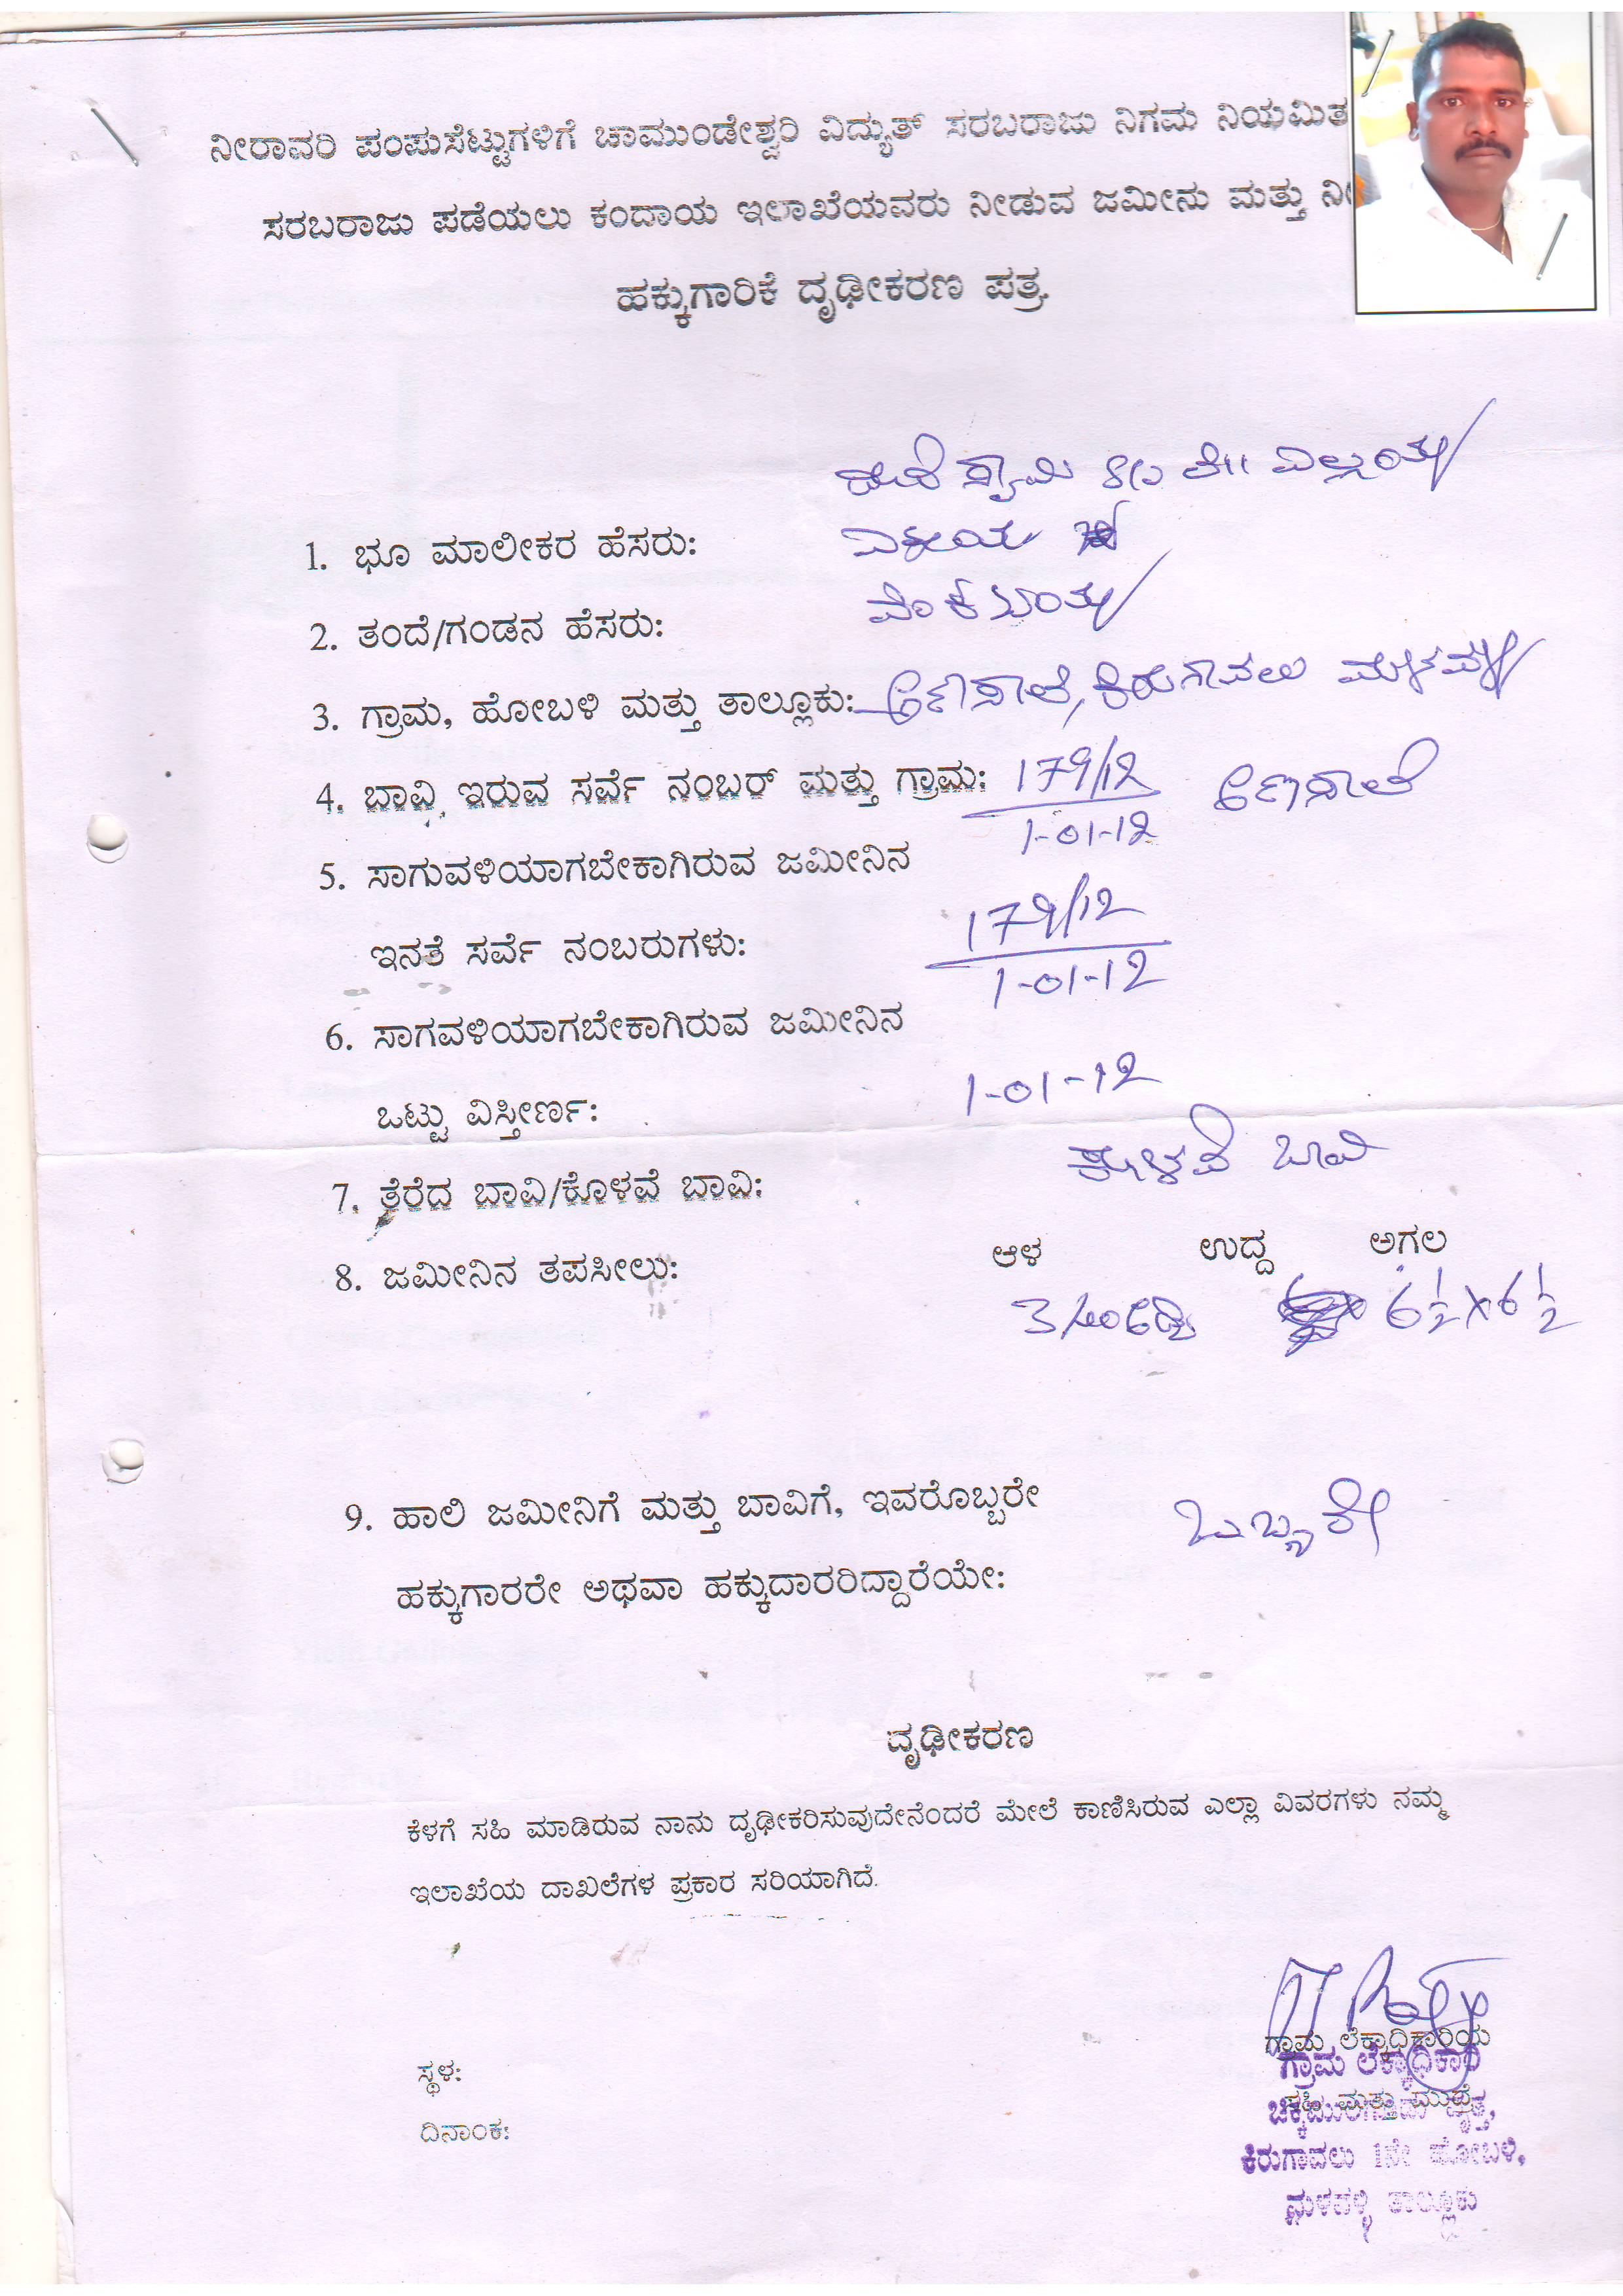 ನೀರಾವರಿ ಪಂಪುಸೆಟ್ಟುಗಳಿಗೆ ಚಾಮುಂಡೇಶ್ವರಿ ವಿದ್ಯುತ್ ಸರಬರಾಜು ನಿಗಮ ನಿಯಮಿತ
ಸರಬರಾಜು ಪಡೆಯಲು ಕಂದಾಯ ಇಲಾಖೆಯವರು ನೀಡುವ ಜಮೀನು ಮತ್ತು ನೀ
ಹಕ್ಕುಗಾರಿಕೆ ದೃಢೀಕರಣ ಪತ್ರ
1. ಭೂ ಮಾಲೀಕರ ಹೆಸರು:
2. ತಂದೆ/ಗಂಡನ ಹೆಸರು:
3. ಗ್ರಾಮ, ಹೋಬಳಿ ಮತ್ತು ತಾಲ್ಲೂಕು: ಕಿರುಗಾವಲು
4. ಬಾವಿ ಇರುವ ಸರ್ವೆ ನಂಬರ್ ಮತ್ತು ಗ್ರಾಮ: 179/12
1-01-12
5. ಸಾಗುವಳಿಯಾಗಬೇಕಾಗಿರುವ ಜಮೀನಿನ
ಇನತೆ ಸರ್ವೆ ನಂಬರುಗಳು: 179/12
1-01-12
6. ಸಾಗವಳಿಯಾಗಬೇಕಾಗಿರುವ ಜಮೀನಿನ
ಒಟ್ಟು ವಿಸ್ತೀರ್ಣ: 1-01-12
7. ತೆರೆದ ಬಾವಿ/ಕೊಳವೆ ಬಾವಿ: ಕೊಳವೆ ಬಾವಿ
8. ಜಮೀನಿನ ತಪಸೀಲು: ಆಳ ಉದ್ದ ಅಗಲ
6 1/2 X 6 1/2
9. ಹಾಲಿ ಜಮೀನಿಗೆ ಮತ್ತು ಬಾವಿಗೆ, ಇವರೊಬ್ಬರೇ
ಹಕ್ಕುಗಾರರೇ ಅಥವಾ ಹಕ್ಕುದಾರರಿದ್ದಾರೆಯೇ: ಒಬ್ಬರೇ
ದೃಢೀಕರಣ
ಕೆಳಗೆ ಸಹಿ ಮಾಡಿರುವ ನಾನು ದೃಢೀಕರಿಸುವುದೇನೆಂದರೆ ಮೇಲೆ ಕಾಣಿಸಿರುವ ಎಲ್ಲಾ ವಿವರಗಳು ನಮ್ಮ
ಇಲಾಖೆಯ ದಾಖಲೆಗಳ ಪ್ರಕಾರ ಸರಿಯಾಗಿದೆ.
ಗ್ರಾಮ ಲೆಕ್ಕಾಧಿಕಾರಿಯ
ಗ್ರಾಮ ಲೆಕ್ಕಾಧಿಕಾರಿ
ಸ್ಥಳ:
ಸಹಿ ಮತ್ತು ಮುದ್ರೆ
ವೃತ್ತ,
ದಿನಾಂಕ:
ಕಿರುಗಾವಲು 1ನೇ ಹೋಬಳಿ,
ಮಳವಳ್ಳಿ ತಾಲ್ಲೂಕು